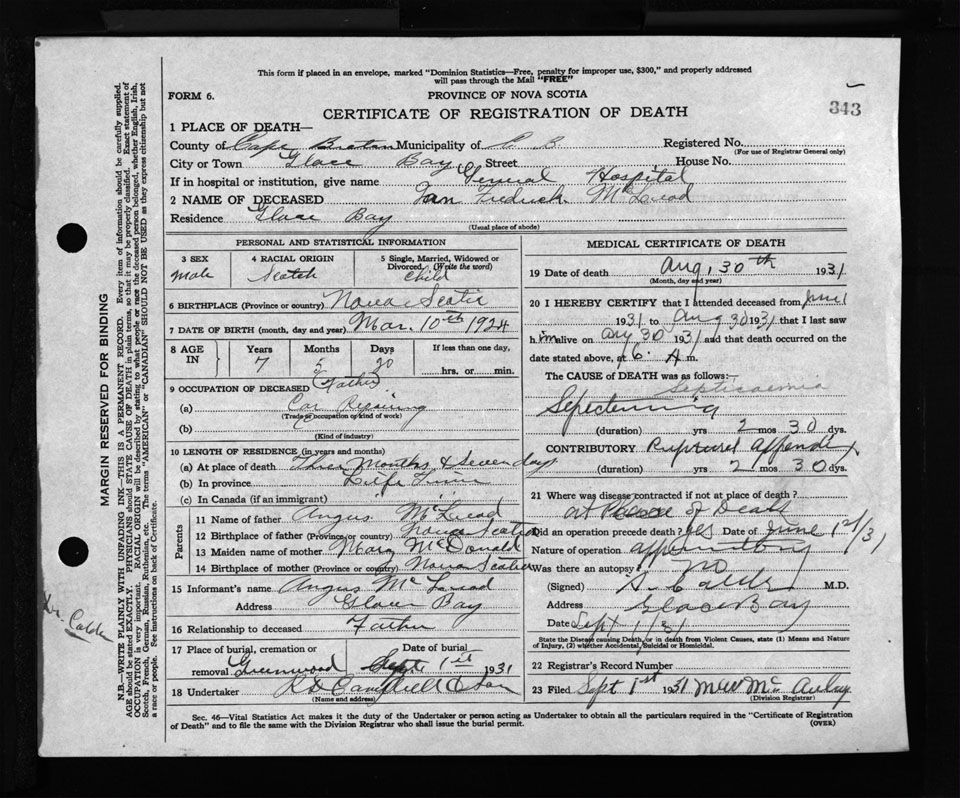 This form if placed in an envelope, marked "Dominion Statistics—Free, penalty for improper use, $300," and properly addressed
will pass through the Mail "FREE"
FORM 6.
PROVINCE OF NOVA SCOTIA
343
CERTIFICATE OF REGISTRATION OF DEATH
1 PLACE OF DEATH—
County of Cape Breton Municipality of C. B. Registered No.
(For use of Registrar General only)
City or Town Glace Bay Street House No.
If in hospital or institution, give name General Hospital
2 NAME OF DECEASED Ian Fredrick McLeod
Residence Glace Bay
(Usual place of abode)
PERSONAL AND STATISTICAL INFORMATION
3 SEX 4 RACIAL ORIGIN 5 Single, Married, Widowed or
Divorced (Write the word)
male Scotch Child
6 BIRTHPLACE (Province or country) Nova Scotia
7 DATE OF BIRTH (month, day and year) Mar. 10th 1924
8 AGE IN Years Months Days If less than one day,
7 5 20 hrs. or min.
9 OCCUPATION OF DECEASED Father
(a) Car Repairing
(Trade or occupation or kind of work)
(b)
(Kind of industry)
10 LENGTH OF RESIDENCE (in years and months)
(a) At place of death Three Months & Seven days
(b) In province Life Time
(c) In Canada (if an immigrant)
Parents
11 Name of father Angus McLeod
12 Birthplace of father (Province or country) Nova Scotia
13 Maiden name of mother Mary McDonald
14 Birthplace of mother (Province or country) Nova Scotia
15 Informant's name Angus McLeod
Address Glace Bay
16 Relationship to deceased Father
17 Place of burial, cremation or Date of burial
removal Greenwood Sept 1st 1931
18 Undertaker Campbell & Son
(Name and address)
MEDICAL CERTIFICATE OF DEATH
19 Date of death Aug. 30th 1931
(Month, day and year)
20 I HEREBY CERTIFY that I attended deceased from June 1
1931 to Aug 30 1931 that I last saw
him alive on Aug 30 1931 and that death occurred on the
date stated above, at 6 A m.
The CAUSE of DEATH was as follows:—
Septicaemia
(duration) yrs 2 mos 30 dys.
CONTRIBUTORY Ruptured Appendix
(duration) yrs 2 mos 30 dys.
21 Where was disease contracted if not at place of death?
at Place of Death
Did an operation precede death? yes Date of June 1st/31
Nature of operation
Was there an autopsy? no
(Signed) Calder M.D.
Address Glace Bay
Date Sept 1/31
State the Disease causing Death, or in death from Violent Causes, state (1) Means and Nature
of Injury, (2) whether Accidental, Suicidal or Homicidal.
22 Registrar's Record Number
23 Filed Sept 1st 1931
(Division Registrar)
Sec. 46—Vital Statistics Act makes it the duty of the Undertaker or person acting as Undertaker to obtain all the particulars required in the "Certificate of Registration
of Death" and to file the same with the Division Registrar who shall issue the burial permit.
(OVER)
MARGIN RESERVED FOR BINDING
N.B.—WRITE PLAINLY WITH UNFADING INK—THIS IS A PERMANENT RECORD. Every item of information should be carefully supplied.
AGE should be stated EXACTLY. PHYSICIANS should STATE CAUSE OF DEATH in plain terms, so that it may be properly classified. Exact statement of
OCCUPATION is very important. RACIAL ORIGIN will be described by stating to what people or race the deceased person belonged, whether English, Irish,
Scotch, French, German, Russian, Ruthenian, etc. The terms "AMERICAN" or "CANADIAN" SHOULD NOT BE USED as they express citizenship but not
a race or people. See instructions on back of Certificate.
Dr. Calder